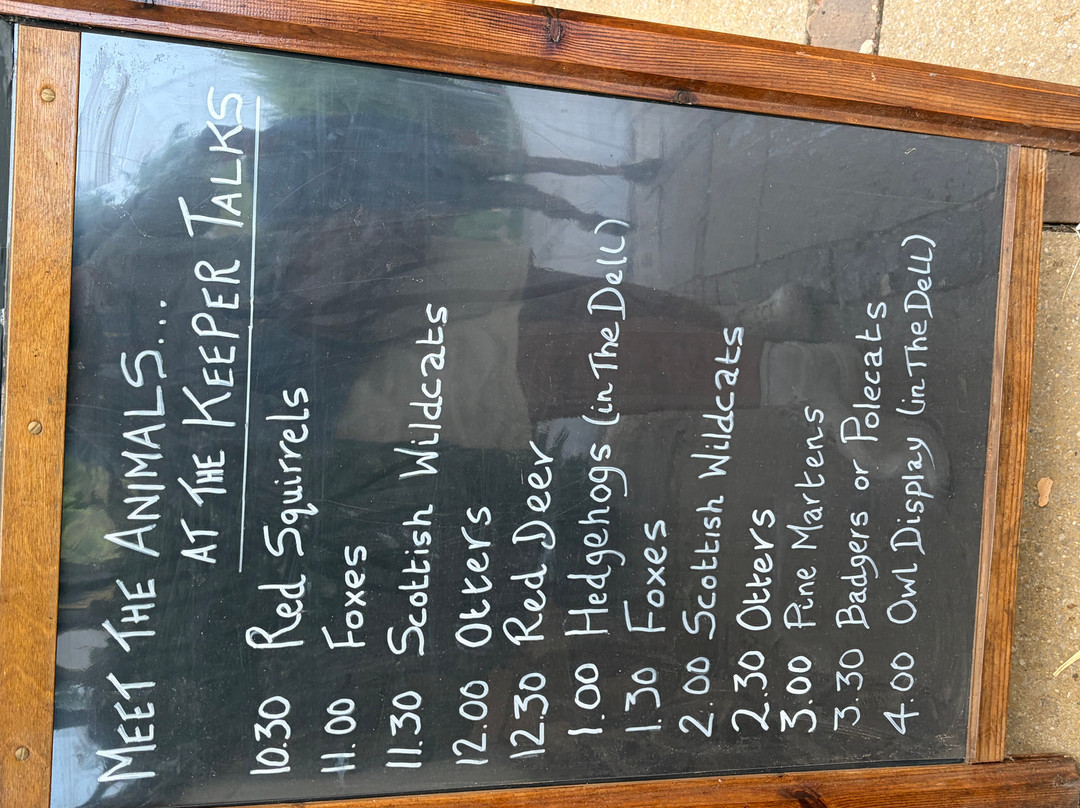 MEET THE ANIMALS...
AT THE KEEPER TALKS
10.30 Red Squirrels
11.00 Foxes
11.30 Scottish Wildcats
12.00 Otters
12.30 Red Deer
1.00 Hedgehogs (in The Dell)
1.30 Foxes
2.00 Scottish Wildcats
2.30 Otters
3.00 Pine Martens
3.30 Badgers or Polecats
4.00 Owl Display (in The Dell)